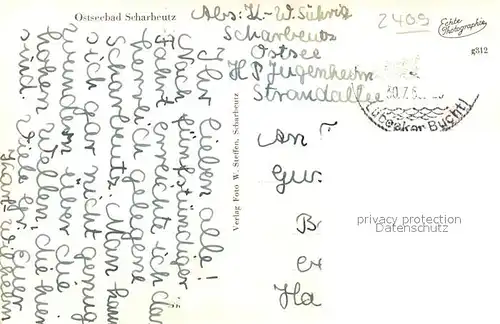 Ostseebad Scharbeutz
Abs: K.-W. Sührig
Scharbeutz
Ostsee
HP Jugenheim
Strandallee
2409
Echte
Photographie
g812
30.7.6
Lübecker Bucht
Ihr lieben alle!
Nach fünfstündiger
Fahrt erreichte ich das
herrlich gelegene
Scharbeutz. Man kann
sich gar nicht genug
wundern über die
hohen Wellen, die hier
sind. Viele Gr. Euer
Karl-Wilhelm
Verlag Foto W. Steffen, Scharbeutz
An
privacy protection
Datenschutz